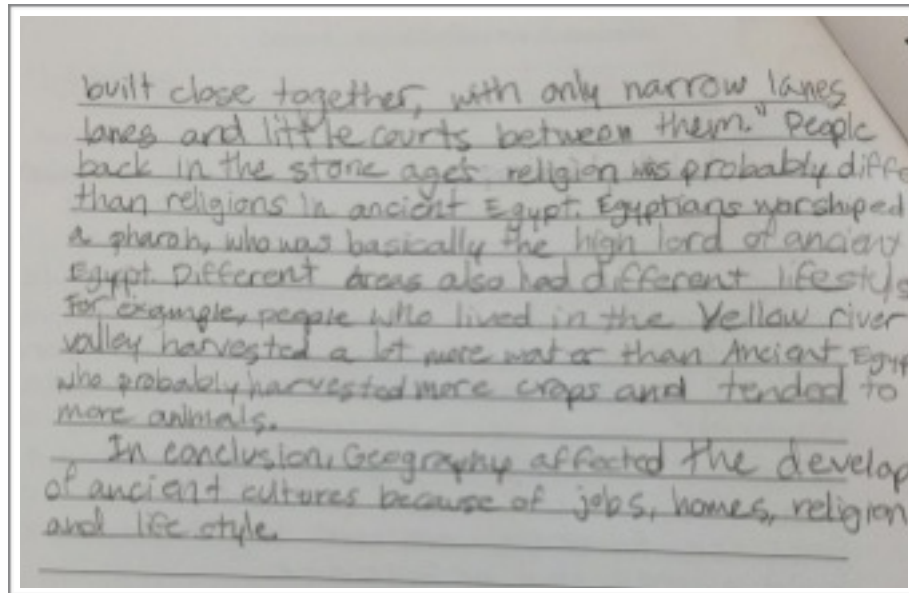 built close together, with only narrow lanes
lanes and little courts between them." People
back in the stone ages religion was probably diffe
than religions in ancient Egypt. Egyptians worshiped
a pharoh, who was basically the high lord of ancient
Egypt. Different areas also had different lifestyls
For example, people who lived in the Yellow river
valley harvested a lot more water than Ancient Egyp
who probably harvested more crops and tended to
more animals.
In conclusion, Geography affected the develop
of ancient cultures because of jobs, homes, religion
and life style.